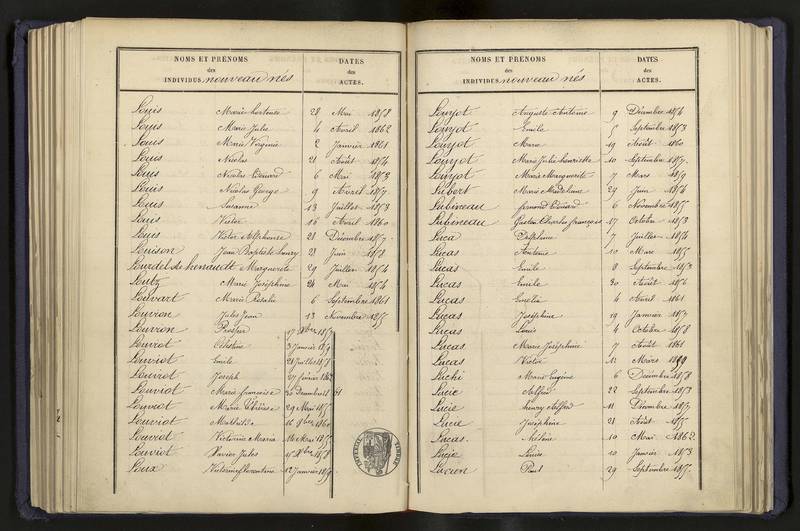 NOMS ET PRÉNOMS DATES
des des
INDIVIDUS nouveau nés ACTES.
Louis Marie hortense 28 Mai 1858
Louis Marie Julie 4 Avril 1862
Louis Marie Virginie 2 Janvier 1861
Louis Nicolas 21 Août 1854
Louis Nicolas Edouard 6 Mai 1853
Louis Nicolas George 9 Avril 1857
Louis Susanne 13 Juillet 1853
Louis Victor 16 Avril 1860
Louis Victor Alphonse 21 Décembre 1857
Louison Jean Baptiste 21 Juin 1858
Marguerite 29 Juillet 1854
Loutz Marie Joséphine 24 Mai 1854
Louvart Marie Rosalie 6 Septembre 1861
Louvion Jules Jean 13 Novembre 1855
Louvion Prosper
Louviot Célestine 3 Janvier
Louviot Emile 21 Juillet
Louviot Joseph 27 février
Louviot Marie françoise 20 Décembre 61
Louviot Marie Thérèse 29 Mai
Louviot Mathilde 16
Louviot Victorine Marie 16 Mai
Louviot Xavier Jules
Loux Victorine florentine 12 Janvier
NOMS ET PRÉNOMS DATES
des des
INDIVIDUS nouveau nés ACTES.
Louyot Auguste Antoine 9 Décembre 1854
Louyot Emile 5 Septembre 1853
Louyot Marie 19 Août 1860
Louyot Marie Julie henriette 10 Septembre 1857
Louyot Marie Marguerite 7 Mars 1859
Lubert Marie Madelaine 29 Juin 1854
Lubineau Edouard 6 Novembre 1855
Lubineau Gustave Charles françois 17 Octobre 1853
Luca Delphine 7 Juillet 1854
Lucas Antoine 10 Mars 1855
Lucas Emile 8 Septembre 1853
Lucas Emile 30 Août 1856
Lucas 4 Avril 1861
Lucas Joséphine 19 Janvier 1857
Lucas Louis 9 Octobre 1858
Lucas Marie Joséphine 7 Août 1861
Lucas Victor 12 Mars
Luchi Marie Eugène 6 Décembre 1858
Lucie Alfred 22 Septembre 1853
Lucie henry Alfred 11 Décembre 1857
Lucie Joséphine 21 Août 1855
Lucas hélène 10 Mai 1862
Lucie Louise 10 Janvier 1853
Lucien Paul 29 Septembre 1855
TIMBRE IMPÉRIAL